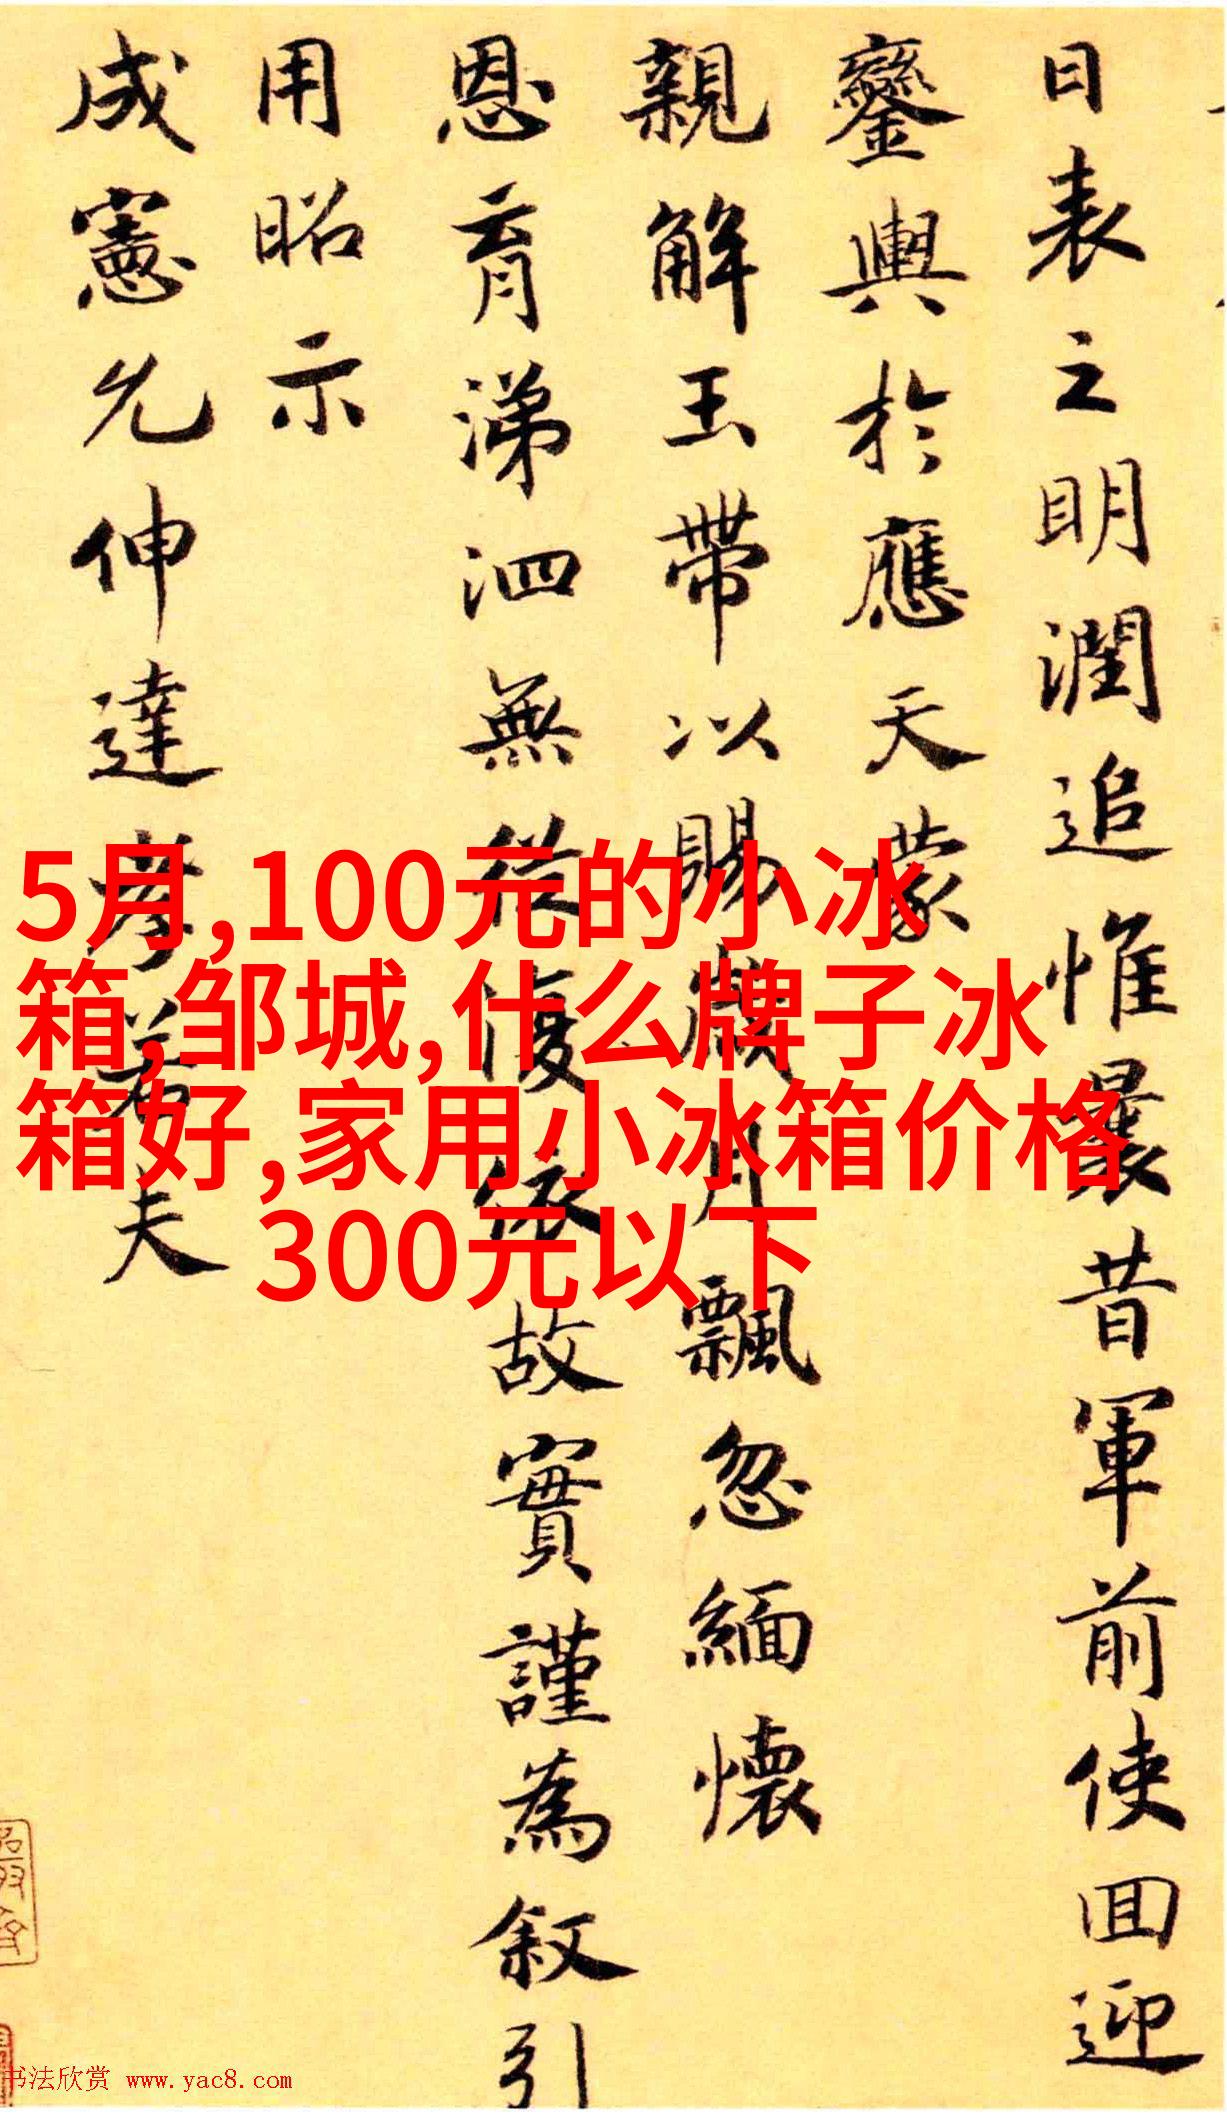 日表之明潤追惟曩昔軍前使回迎
鑾輿於應天蒙
親解玉帶以賜歲月飄忽緬懷
恩育涕泗無從復依故實謹為叙引
用昭示
成憲允伸達孝若夫
5月,100元的小冰
箱,邹城,什么牌子冰
箱好,家用小冰箱价格
300元以下
书法欣赏 www.yac8.com